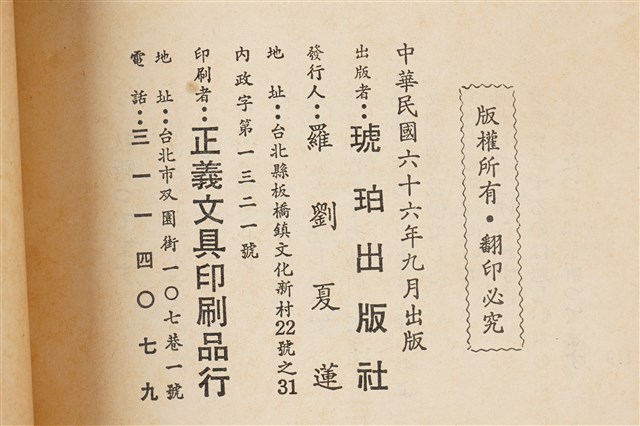 版權所有•翻印必究
中華民國六十六年九月出版
出版者：琥珀出版社
發行人：羅劉夏蓮
地址：台北縣板橋鎮文化新村22號之31
內政字第一三二一號
印刷者：正義文具印刷品行
地址：台北市双園街一〇七巷一號
電話：三一一四〇七九